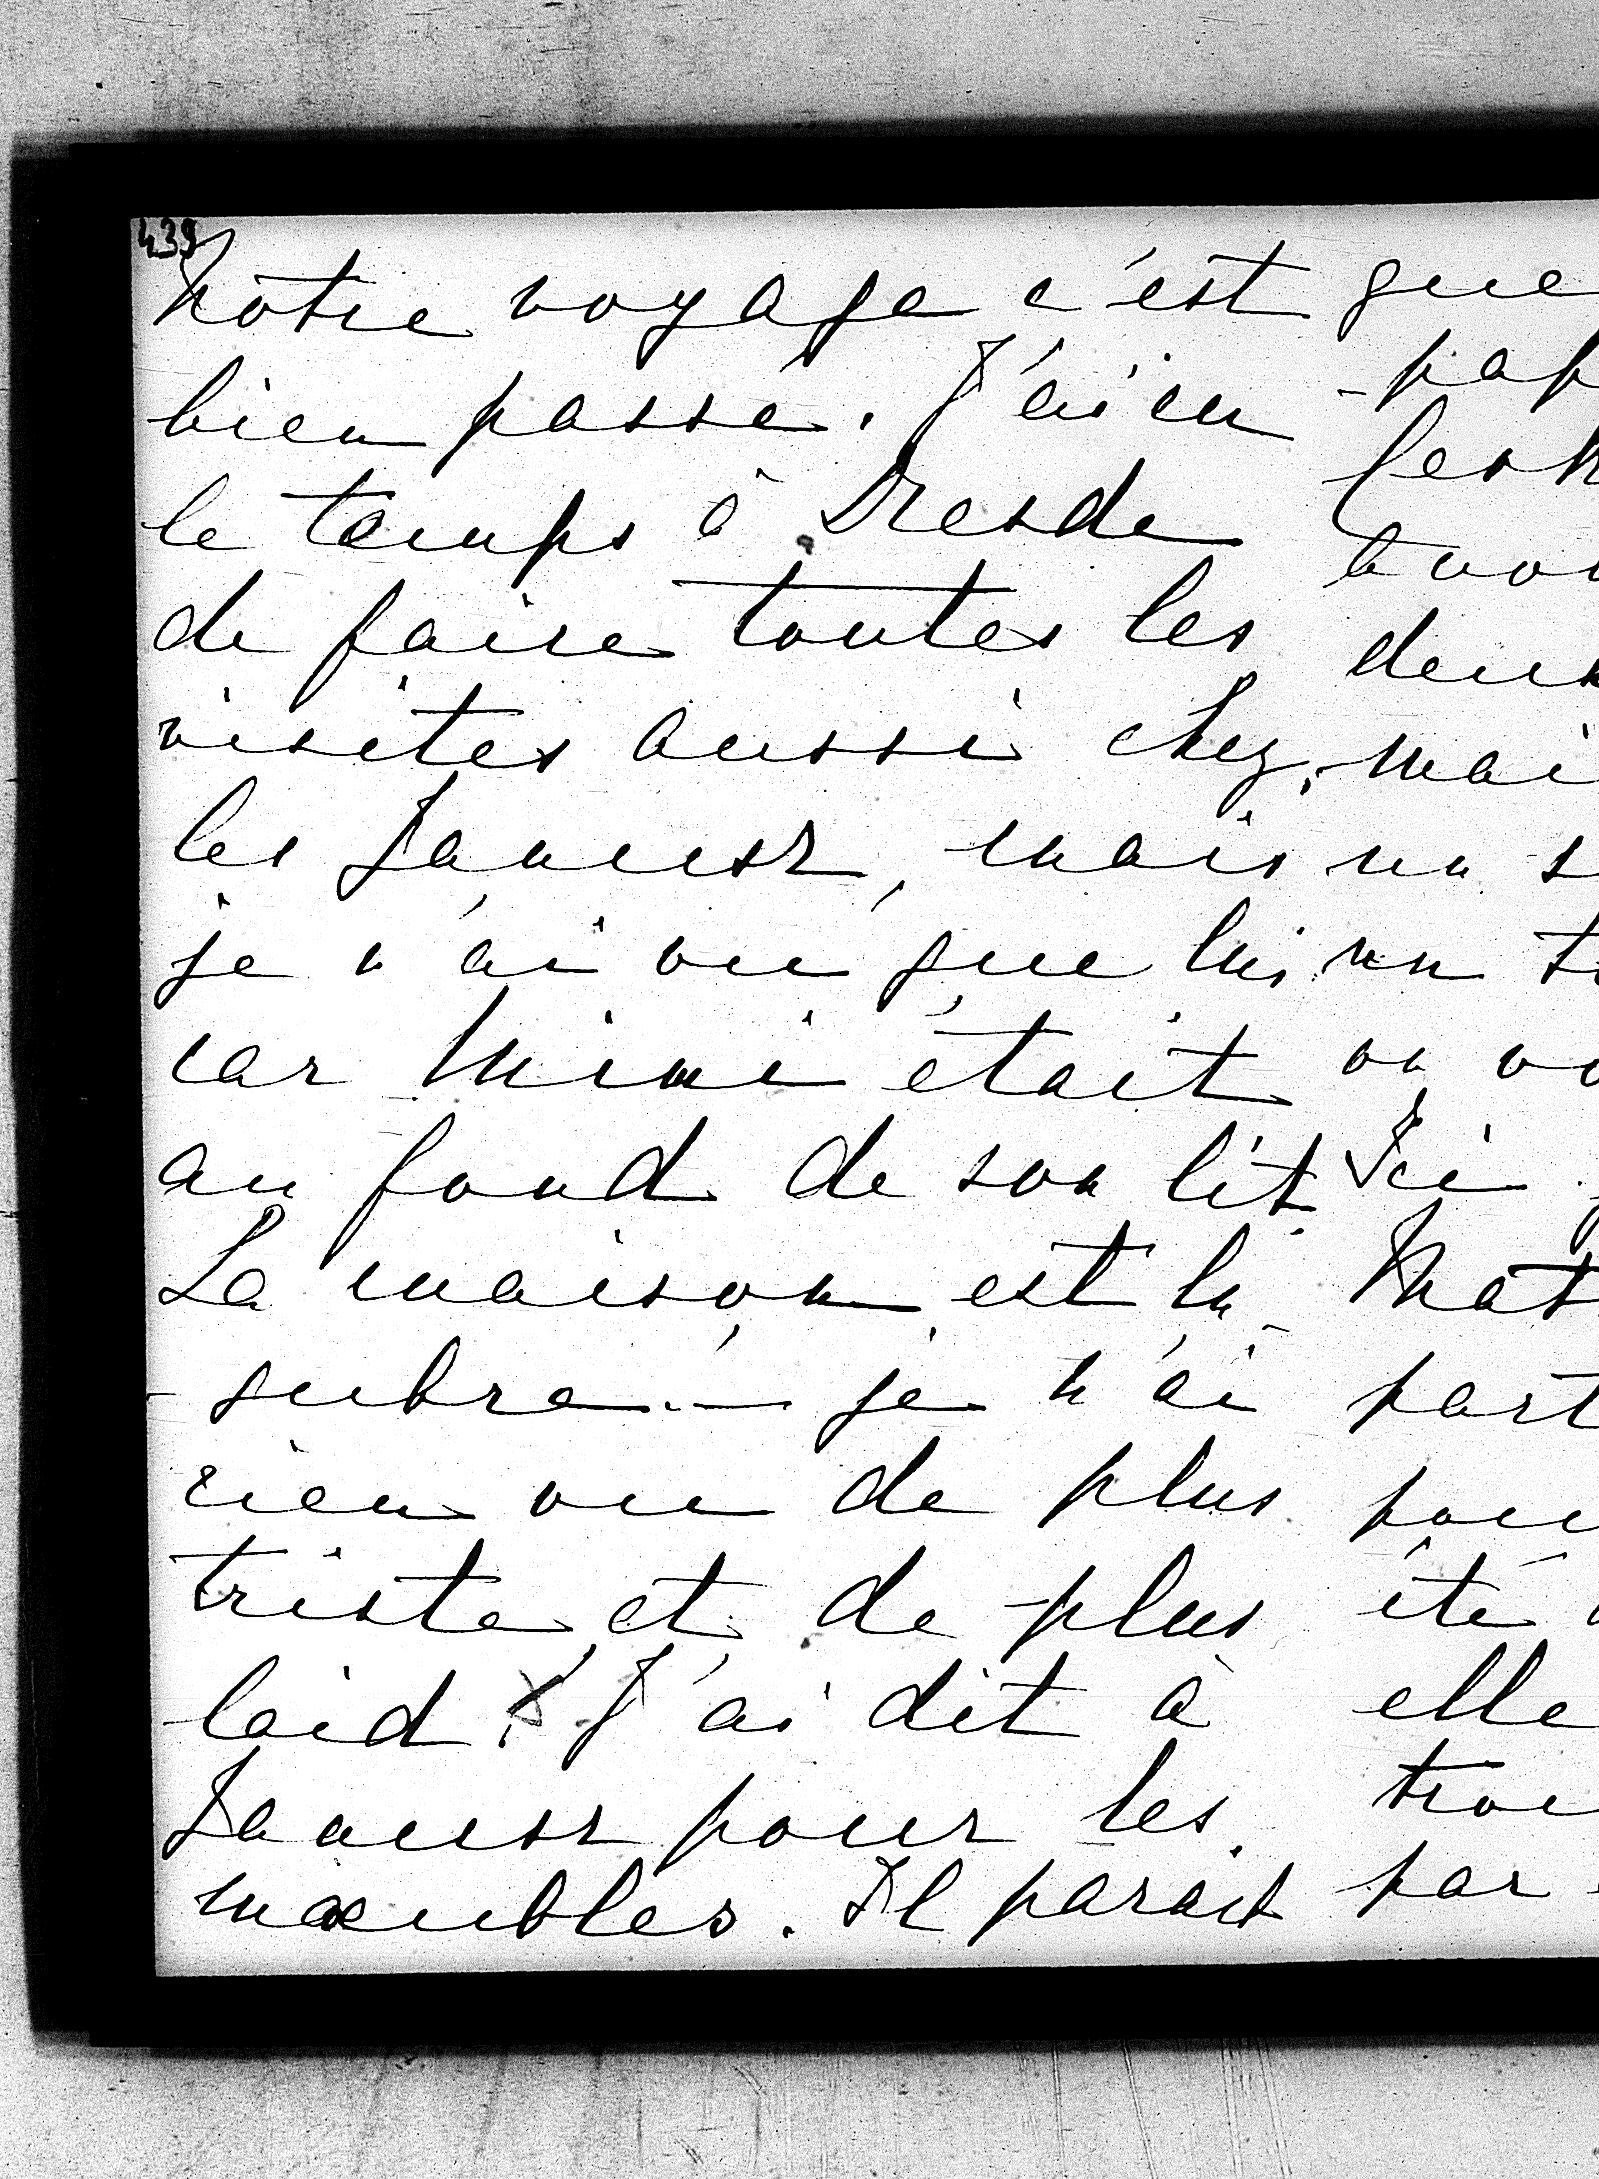 439
Notre voyage c'est
bien passé. J'ai eu
le temps à Dresde
de faire toutes les
visites aussi chez
les Janusz, mais
je n'ai vu que lui
car Mimi était
au fond de son lit.
La maison est lu-
-gubre — je n'ai
rien vu de plus
triste et de plus
laid. J'ai dit à
Janusz pour les
maeubles. Il parait
que
-pap
leon
avon
deux
mai
un s
un t
on vo
Ici
Mat
part
pou
été
elle
trou
par